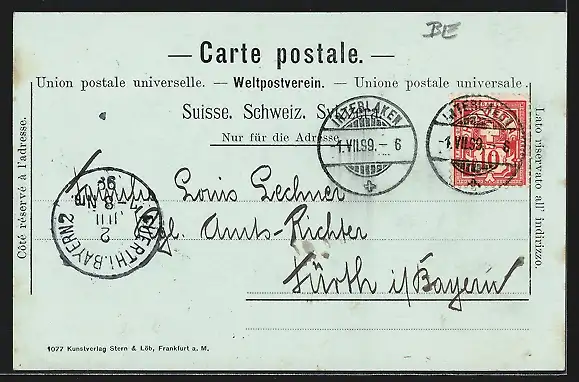 BIE
— Carte postale. —
Union postale universelle. — Weltpostverein. — Unione postale universale
Suisse. Schweiz. Svizzera.
Nur für die Adresse
INTERLAKEN
-1.VII.99.-6
INTERLAKEN
-1.VII.99.-6
10
Côté réservé à l'adresse.
Lato riservato all' indirizzo.
Familie Louis Lechner
kgl. Amts-Richter
Fürth i/Bayern
FUERTH I. BAYERN 2
2
JUL
99
1077 Kunstverlag Stern & Löb, Frankfurt a. M.